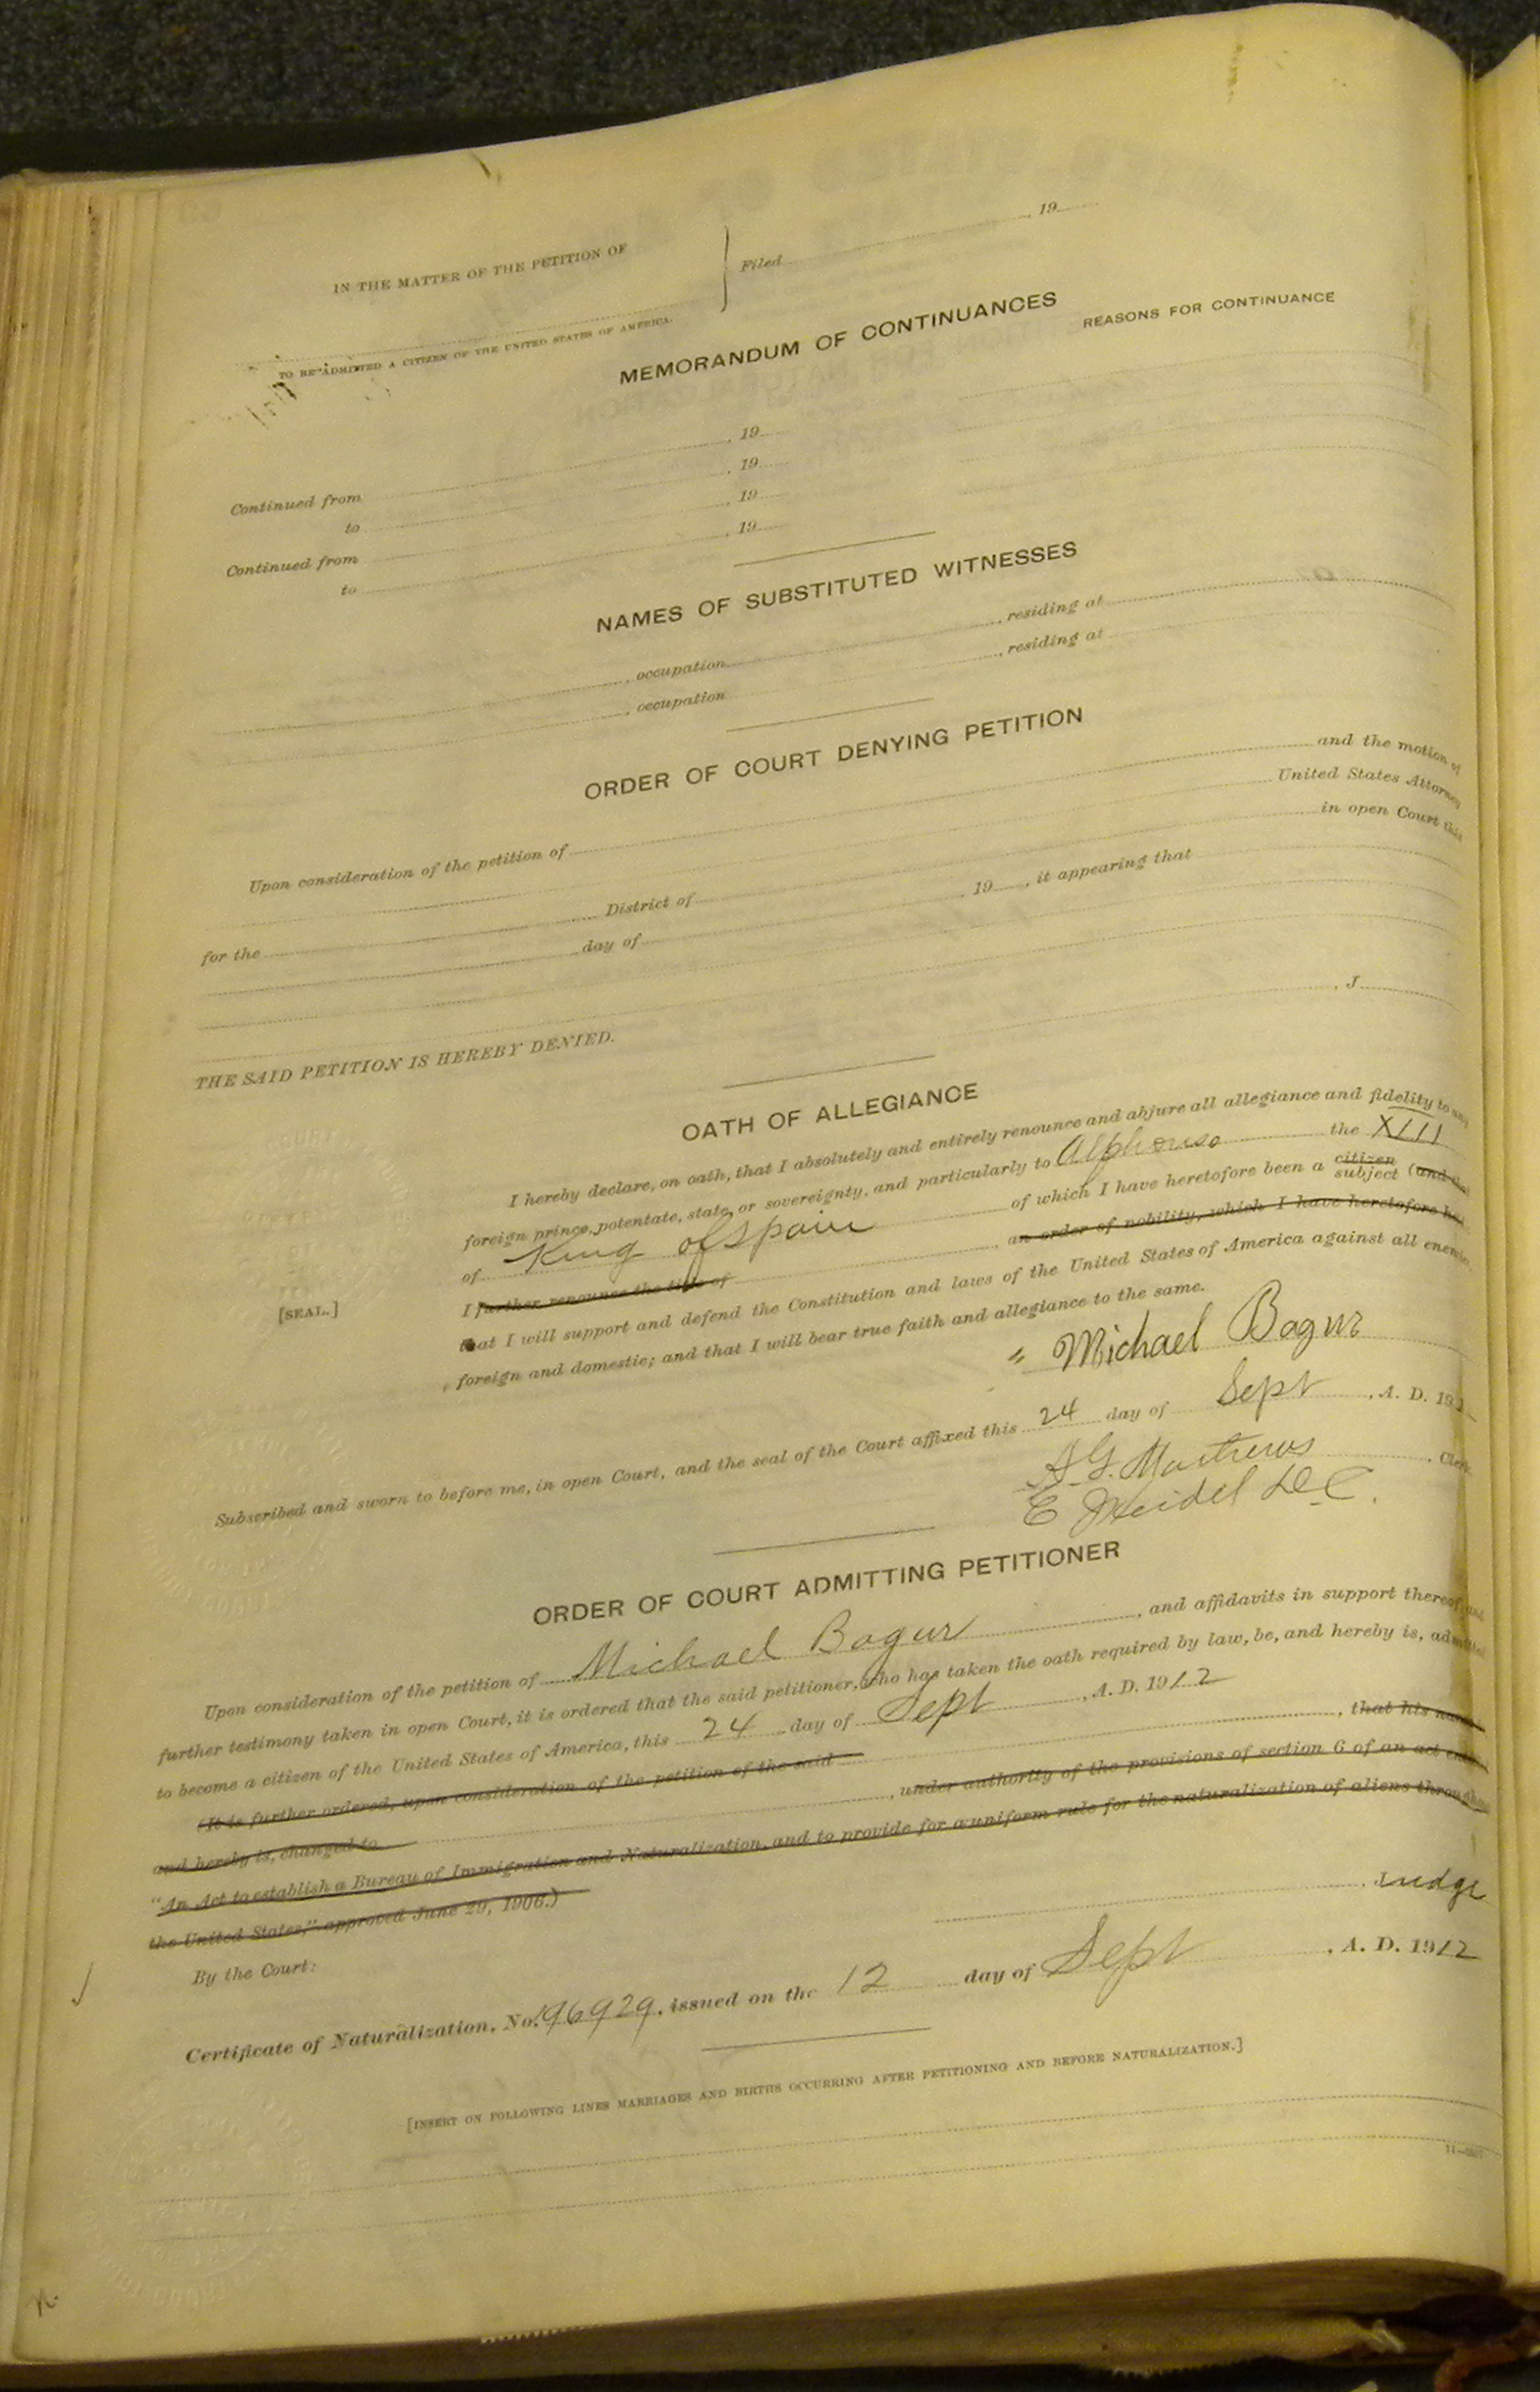 IN THE MATTER OF THE PETITION OF
Filed , 19
TO BE ADMITTED A CITIZEN OF THE UNITED STATES OF AMERICA.
MEMORANDUM OF CONTINUANCES
REASONS FOR CONTINUANCE
Continued from , 19
to , 19
Continued from , 19
to , 19
NAMES OF SUBSTITUTED WITNESSES
, occupation , residing at
, occupation , residing at
ORDER OF COURT DENYING PETITION
Upon consideration of the petition of and the motion of
United States Attorney
for the District of in open Court this
day of , 19 , it appearing that
THE SAID PETITION IS HEREBY DENIED.
, J
OATH OF ALLEGIANCE
I hereby declare, on oath, that I absolutely and entirely renounce and abjure all allegiance and fidelity to any
foreign prince, potentate, state, or sovereignty, and particularly to Alphonso the XIII
of King of Spain of which I have heretofore been a citizen subject (and that
I further renounce the title of , an order of nobility, which I have heretofore
that I will support and defend the Constitution and laws of the United States of America against all enemies,
foreign and domestic; and that I will bear true faith and allegiance to the same.
[SEAL.]
Michael Bagur
Subscribed and sworn to before me, in open Court, and the seal of the Court affixed this 24 day of Sept , A. D. 191
A G. Mathews , Clerk
E Meidel D C.
ORDER OF COURT ADMITTING PETITIONER
Upon consideration of the petition of Michael Bagur , and affidavits in support thereof, and
further testimony taken in open Court, it is ordered that the said petitioner, who has taken the oath required by law, be, and hereby is, admitted
to become a citizen of the United States of America, this 24 day of Sept , A. D. 1912
(It is further ordered, upon consideration of the petition of the said , that his name
and hereby is, changed to , under authority of the provisions of section 6 of an act
"An Act to establish a Bureau of Immigration and Naturalization, and to provide for a uniform rule for the naturalization of aliens throughout
the United States," approved June 29, 1906.)
By the Court:
, Judge
Certificate of Naturalization, No. 196929, issued on the 12 day of Sept , A. D. 1912
[INSERT ON FOLLOWING LINES MARRIAGES AND BIRTHS OCCURRING AFTER PETITIONING AND BEFORE NATURALIZATION.]